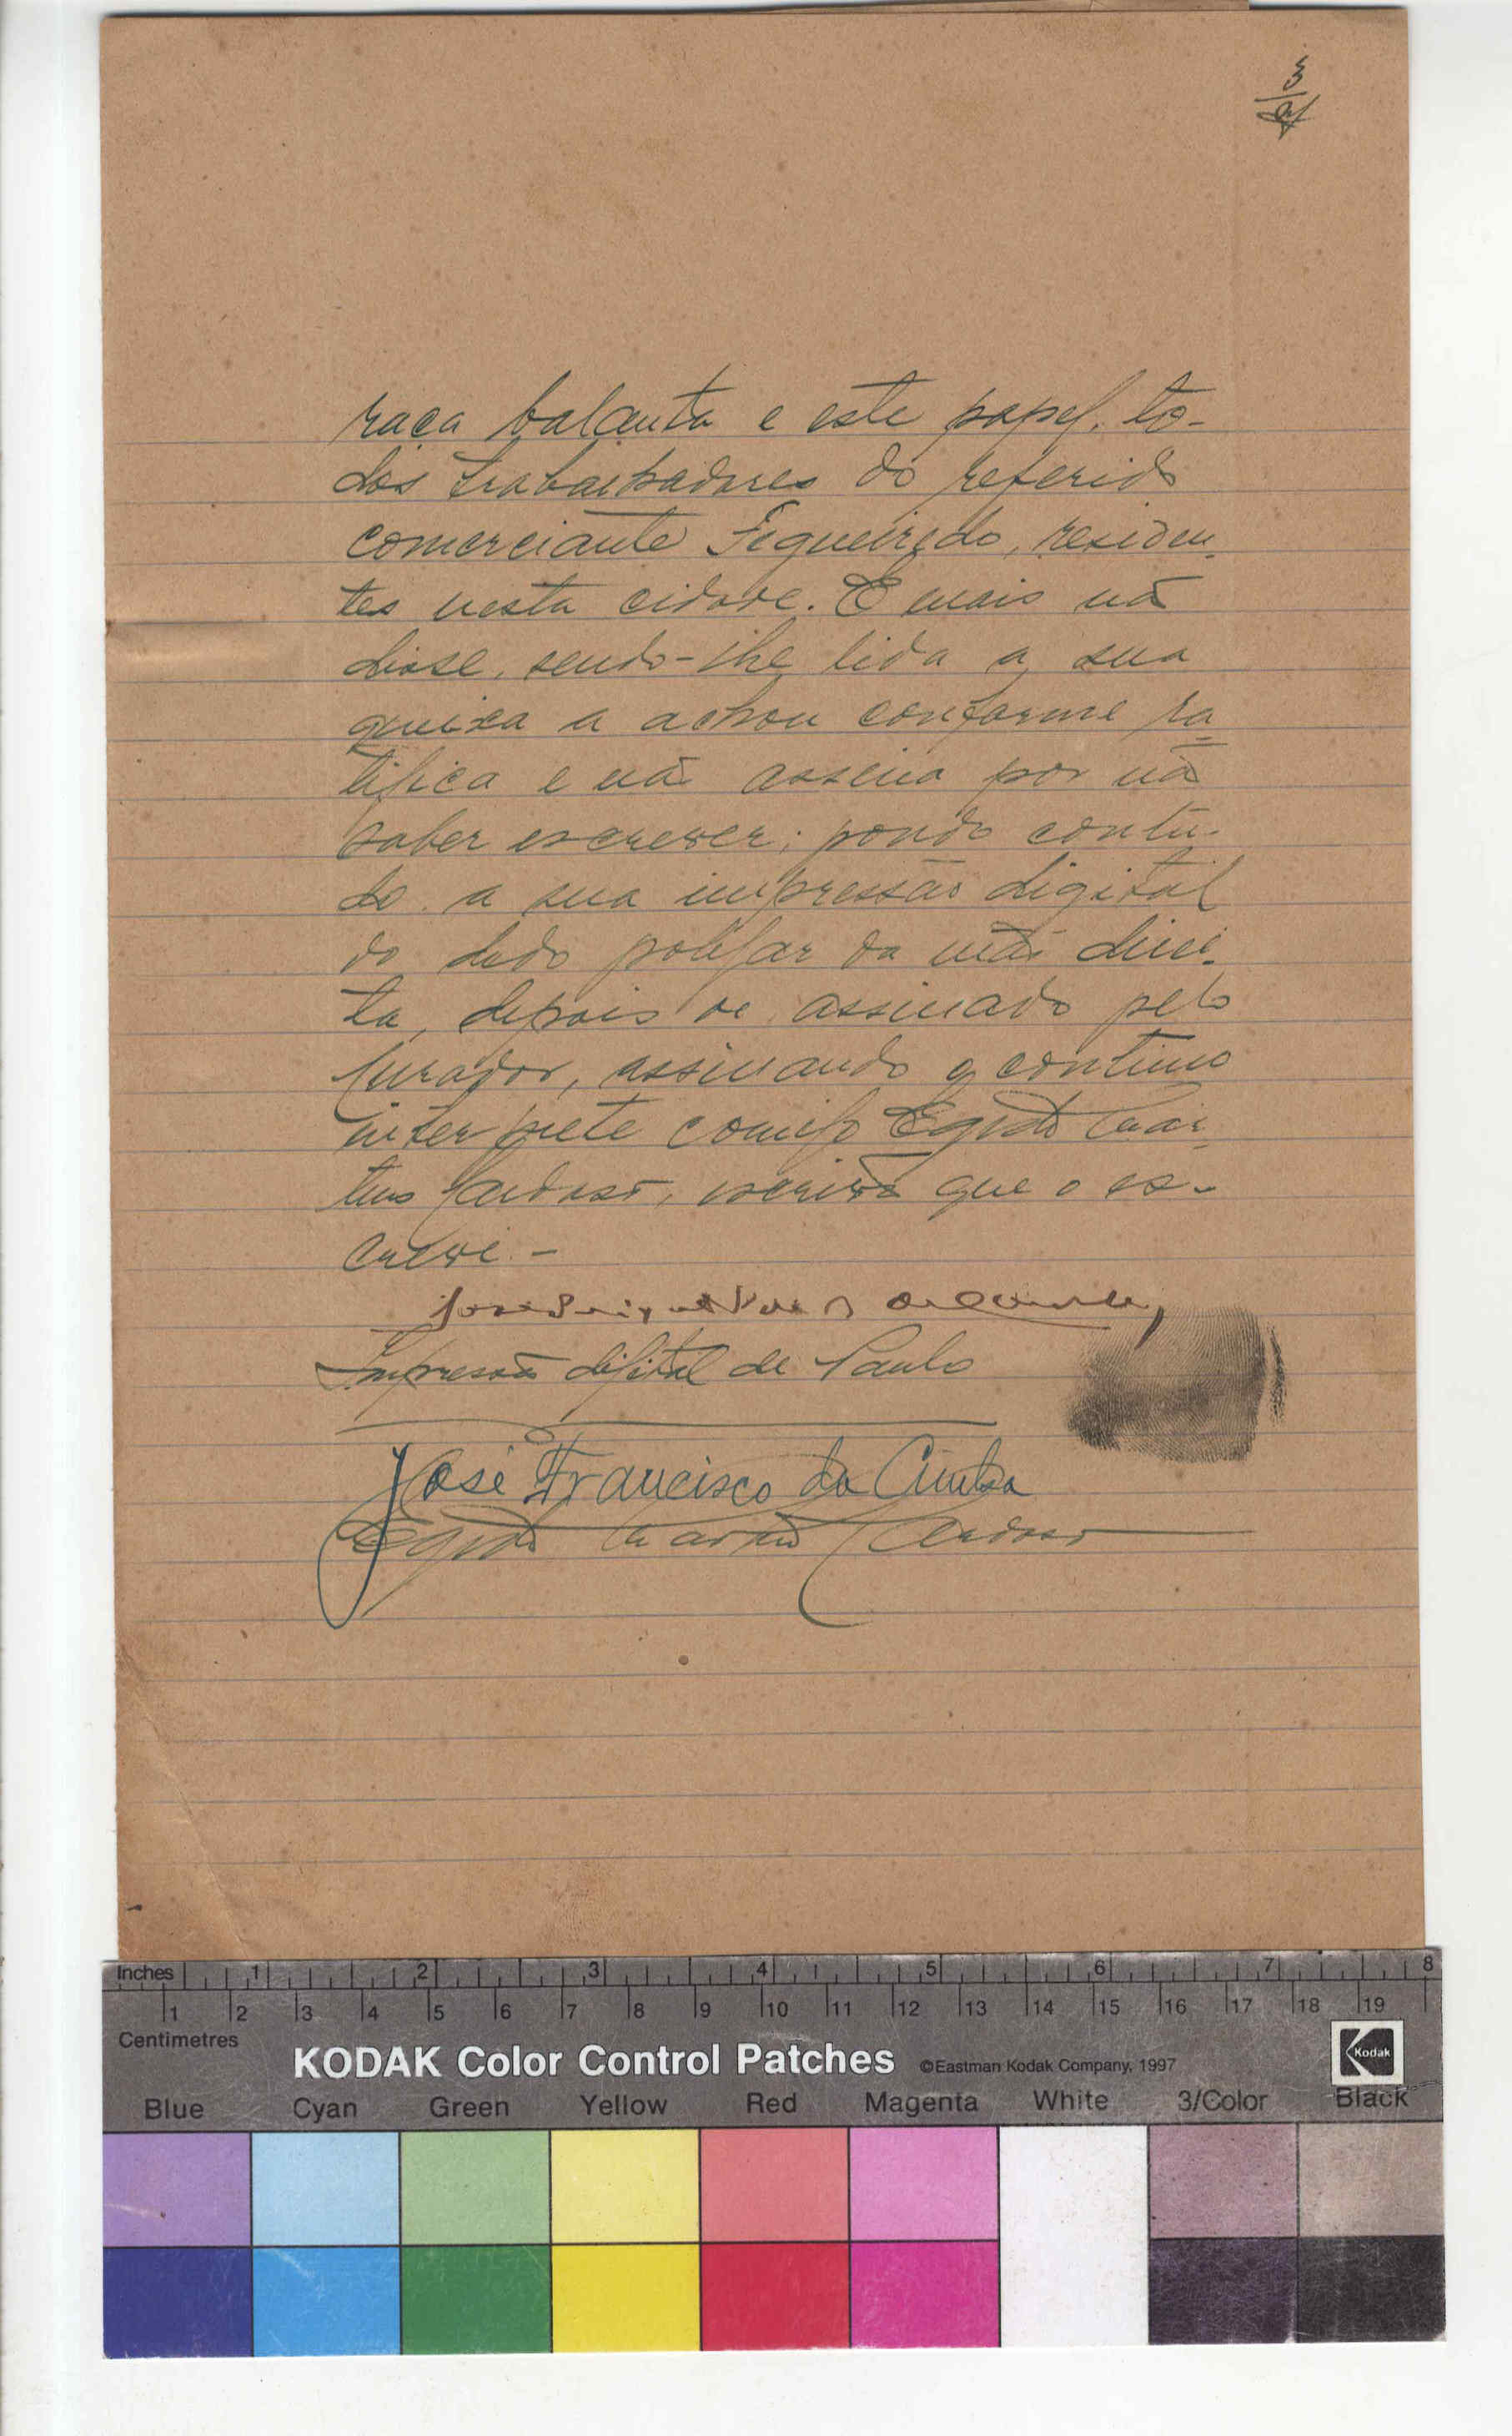 3
raça balanta e este papel, to-
dos trabalhadores do referido
comerciante Figueiredo, residen-
tes nesta cidade. E mais não
disse, sendo-lhe lida a sua
queixa a achou conforme ra-
tifica e não assina por não
saber escrever; pondo contu-
do a sua impressão digital
do dedo polegar da mão direi-
ta, depois de assinado pelo
Curador, assinando o contínuo
intérprete comigo Egidio Mar-
tins Cardoso, escrivão que o es-
crevi.-
Impressão digital de Paulo
José Francisco da Cunha
Egidio Martins Cardoso
Inches 1 2 3 4 5 6 7 8
1 2 3 4 5 6 7 8 9 10 11 12 13 14 15 16 17 18 19
Centimetres
KODAK Color Control Patches ©Eastman Kodak Company, 1997 Kodak
Blue Cyan Green Yellow Red Magenta White 3/Color Black